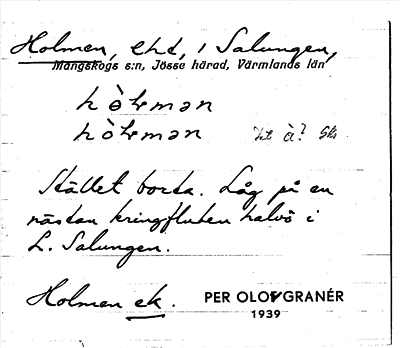 Holmen, ehd, i Salungen,
Mangskogs s:n, Jösse härad, Värmlands län
hòlmən
hòlmən à? Sks
Stället borta. Låg på en
nästan kringfluten halvö i
L. Salungen.
Holmen ek. PER OLOF GRANÉR
1939